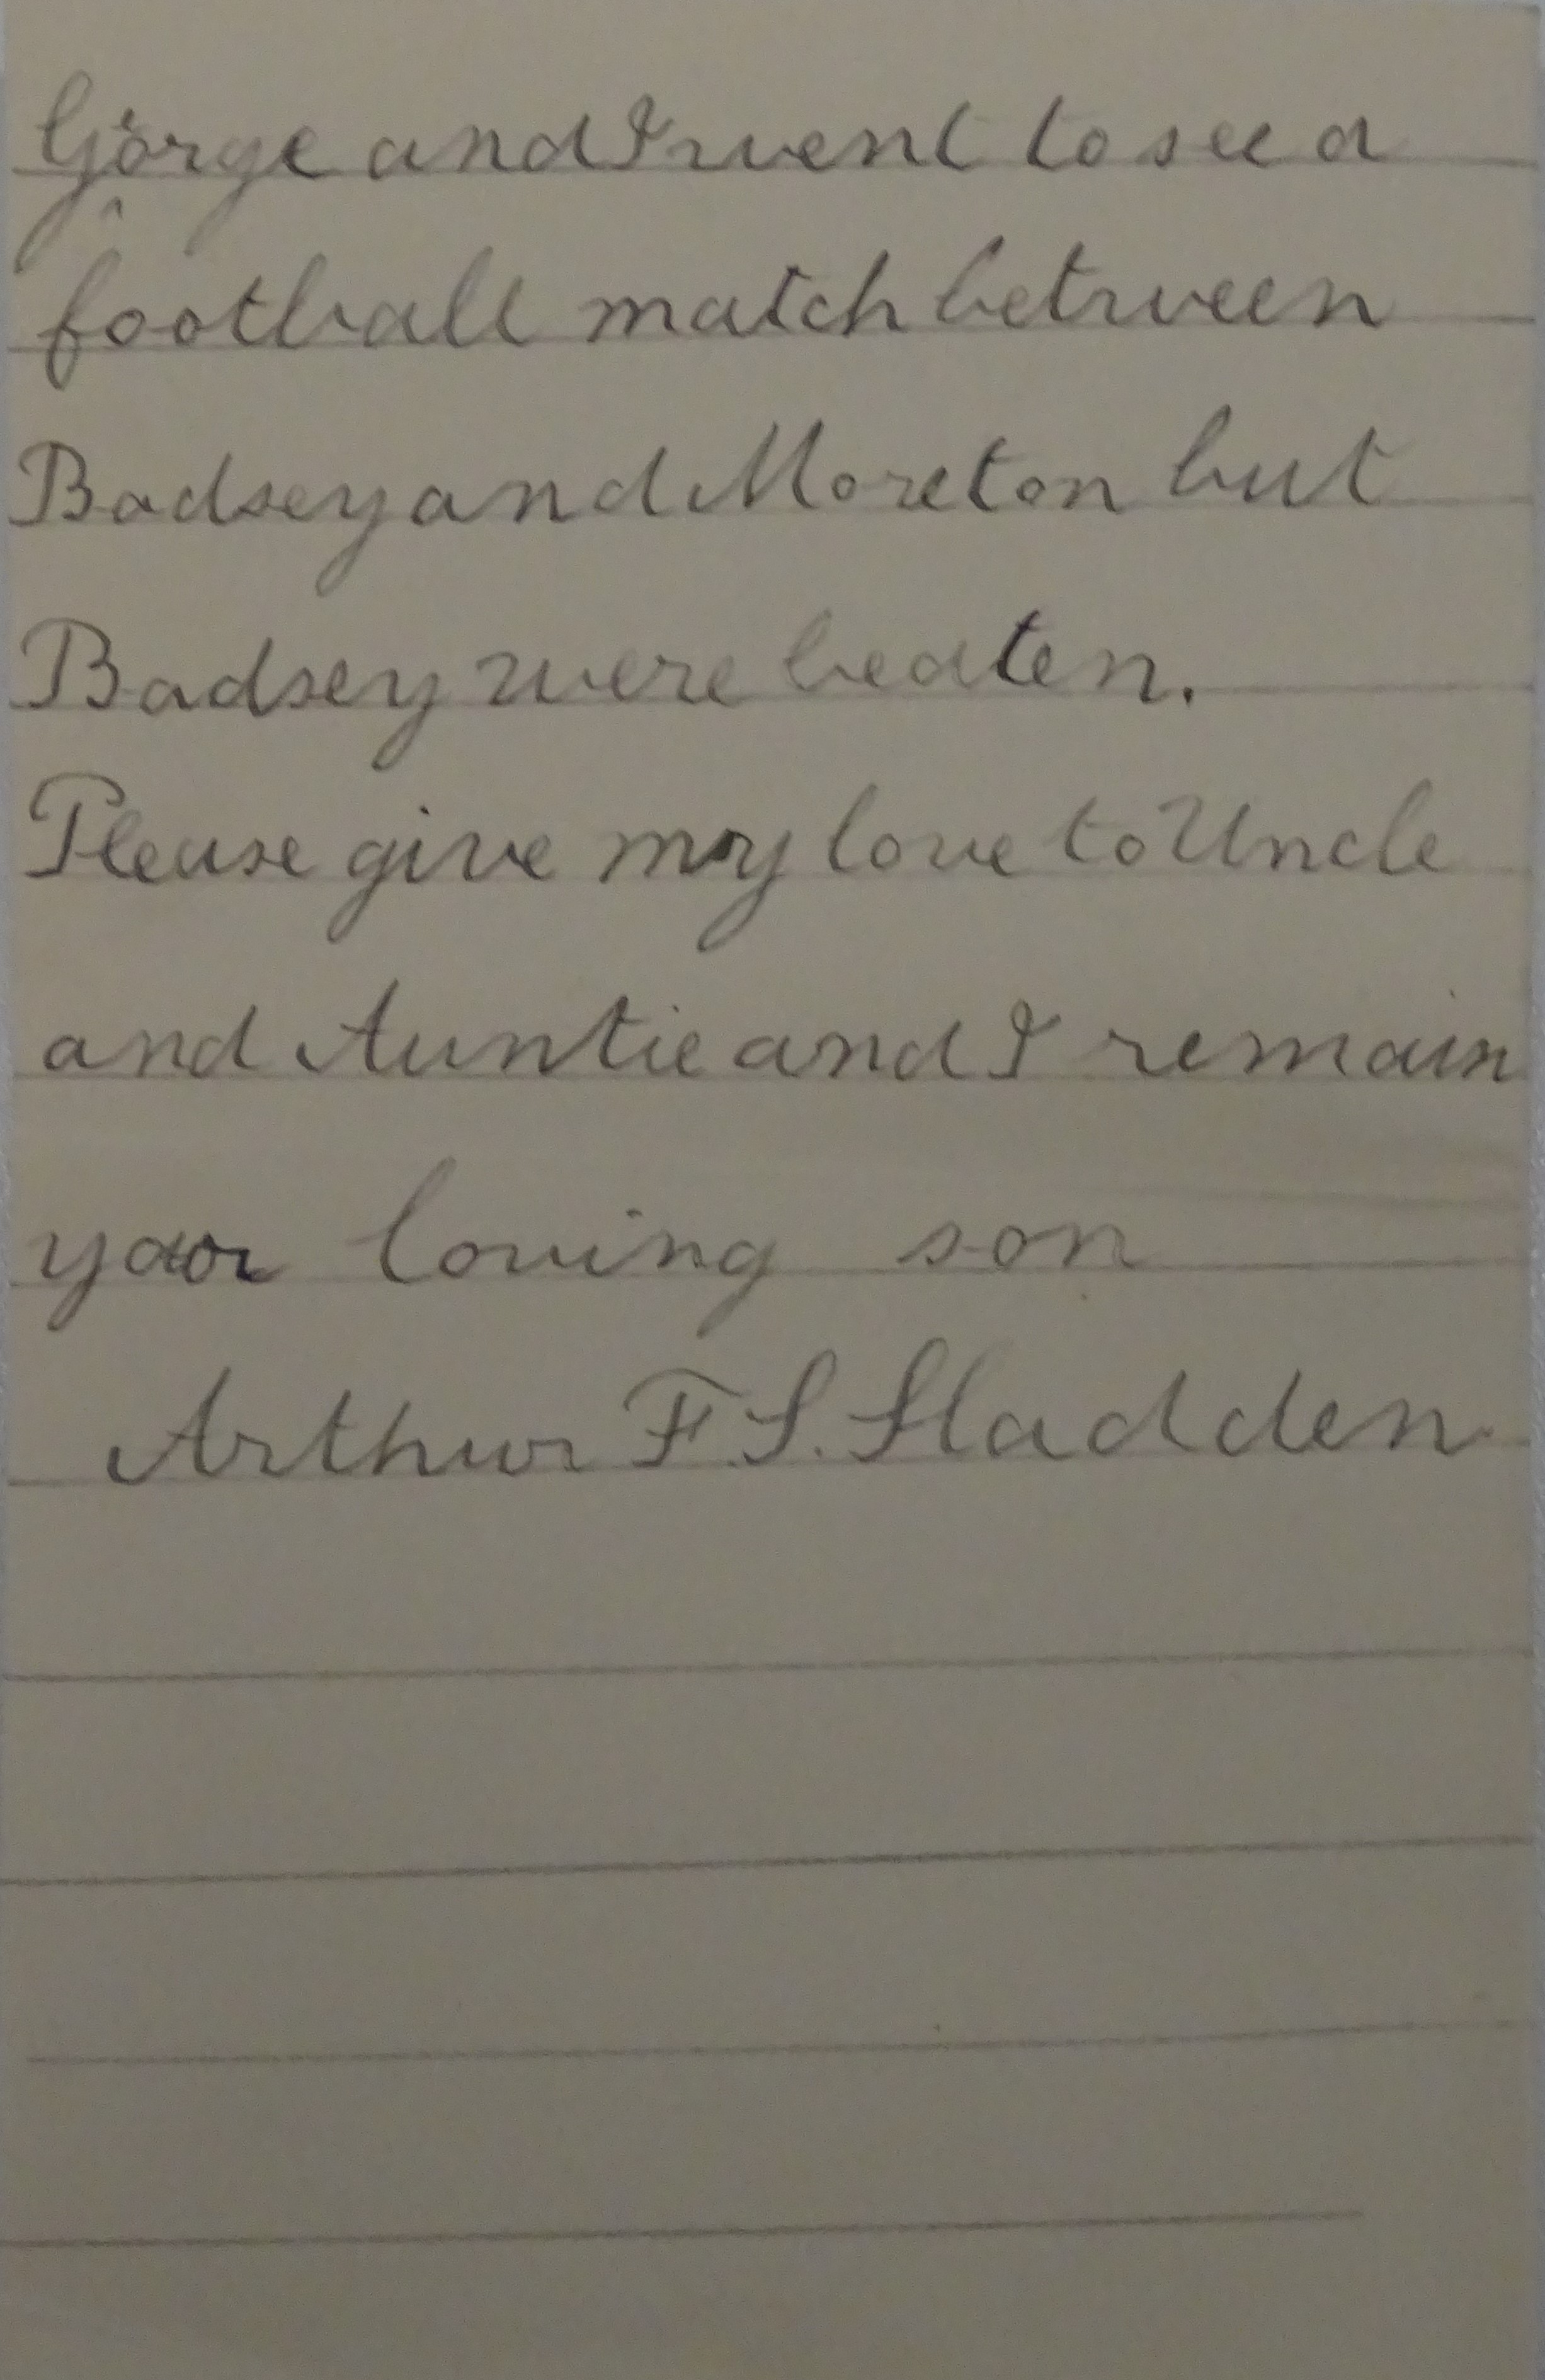 Gorge and I went to see a
football match between
Badsey and Moreton but
Badsey were beaten.
Please give my love to Uncle
and Auntie and I remain
your loving son
Arthur F. S. Sladden